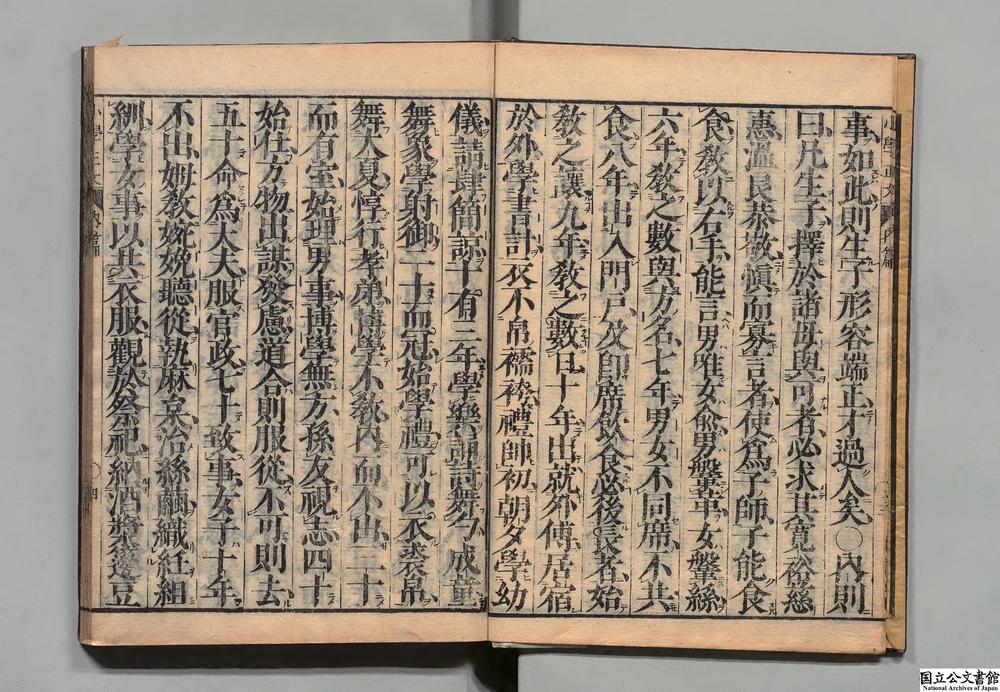 事如此則生子形容端正才過人矣○內則
曰凡生子擇於諸母與可者必求其寬裕慈
惠溫良恭敬愼而寡言者使爲子師子能食
食敎以右手能言男唯女俞男鞶革女鞶絲
六年敎之數與方名七年男女不同席不共
食八年出入門戶及卽席飮食必後長者始
敎之讓九年敎之數日十年出就外傅居宿
於外學書計衣不帛襦袴禮帥初朝夕學幼
儀請肄簡諒十有三年學樂誦詩舞勺成童
舞象學射御二十而冠始學禮可以衣裘帛
舞大夏惇行孝弟博學不敎內而不出三十
而有室始理男事博學無方孫友視志四十
始仕方物出謀發慮道合則服從不可則去
五十命爲大夫服官政七十致事女子十年
不出姆敎婉娩聽從執麻枲治絲繭織紝組
紃學女事以共衣服觀於祭祀納酒漿籩豆
国立公文書館
National Archives of Japan